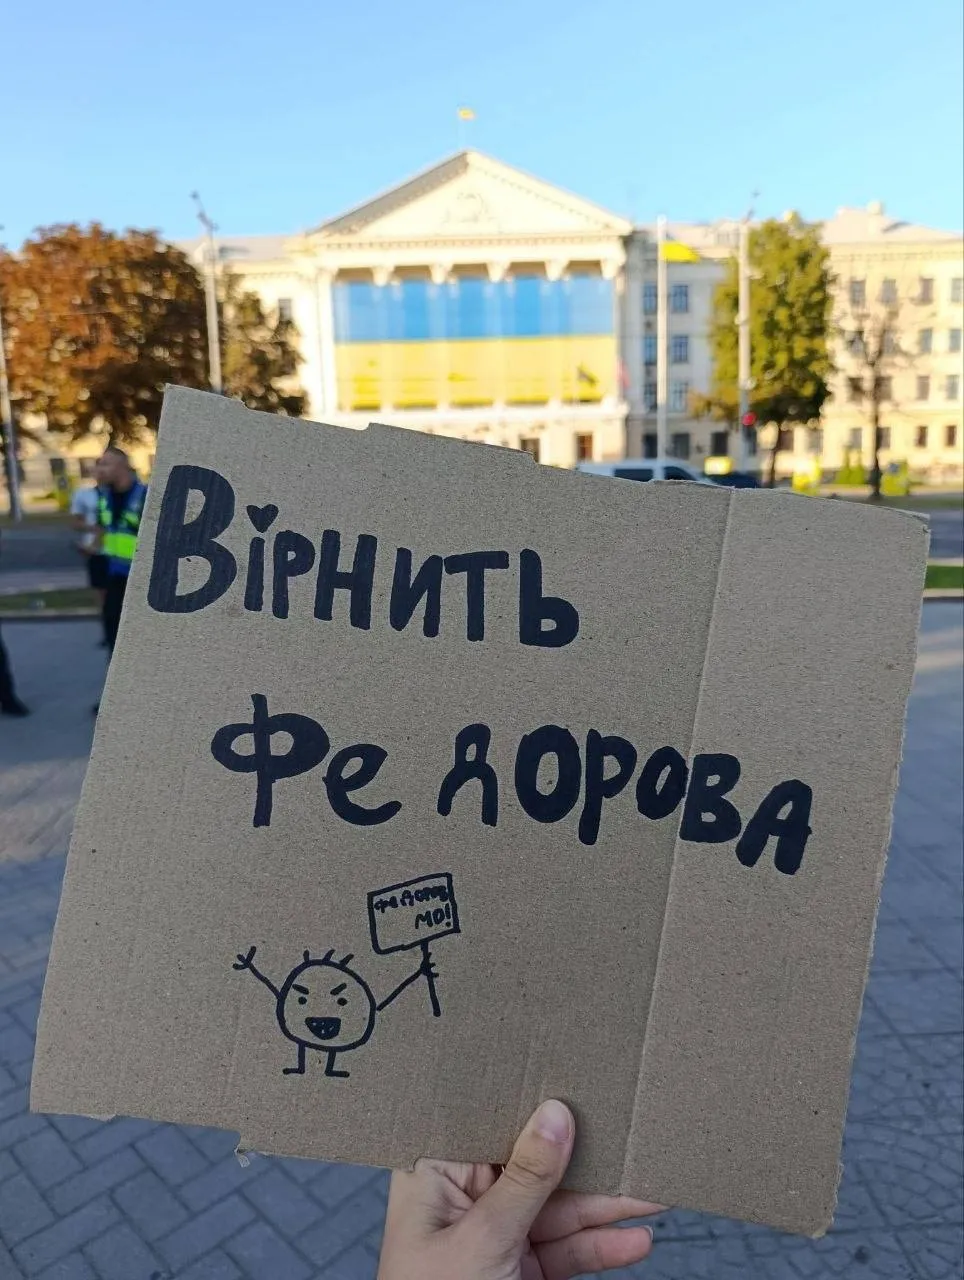 Вірнить
Федорова
Федоров
МО!